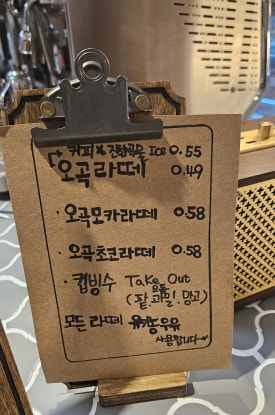 커피 X 진한곡물 Ice 0.55
오곡라떼 0.49
· 오곡모카라떼 0.58
· 오곡초코라떼 0.58
· 컵빙수 Take Out
(팥. 과일. 망고)
모든 라떼 유기농우유
사용합니다~